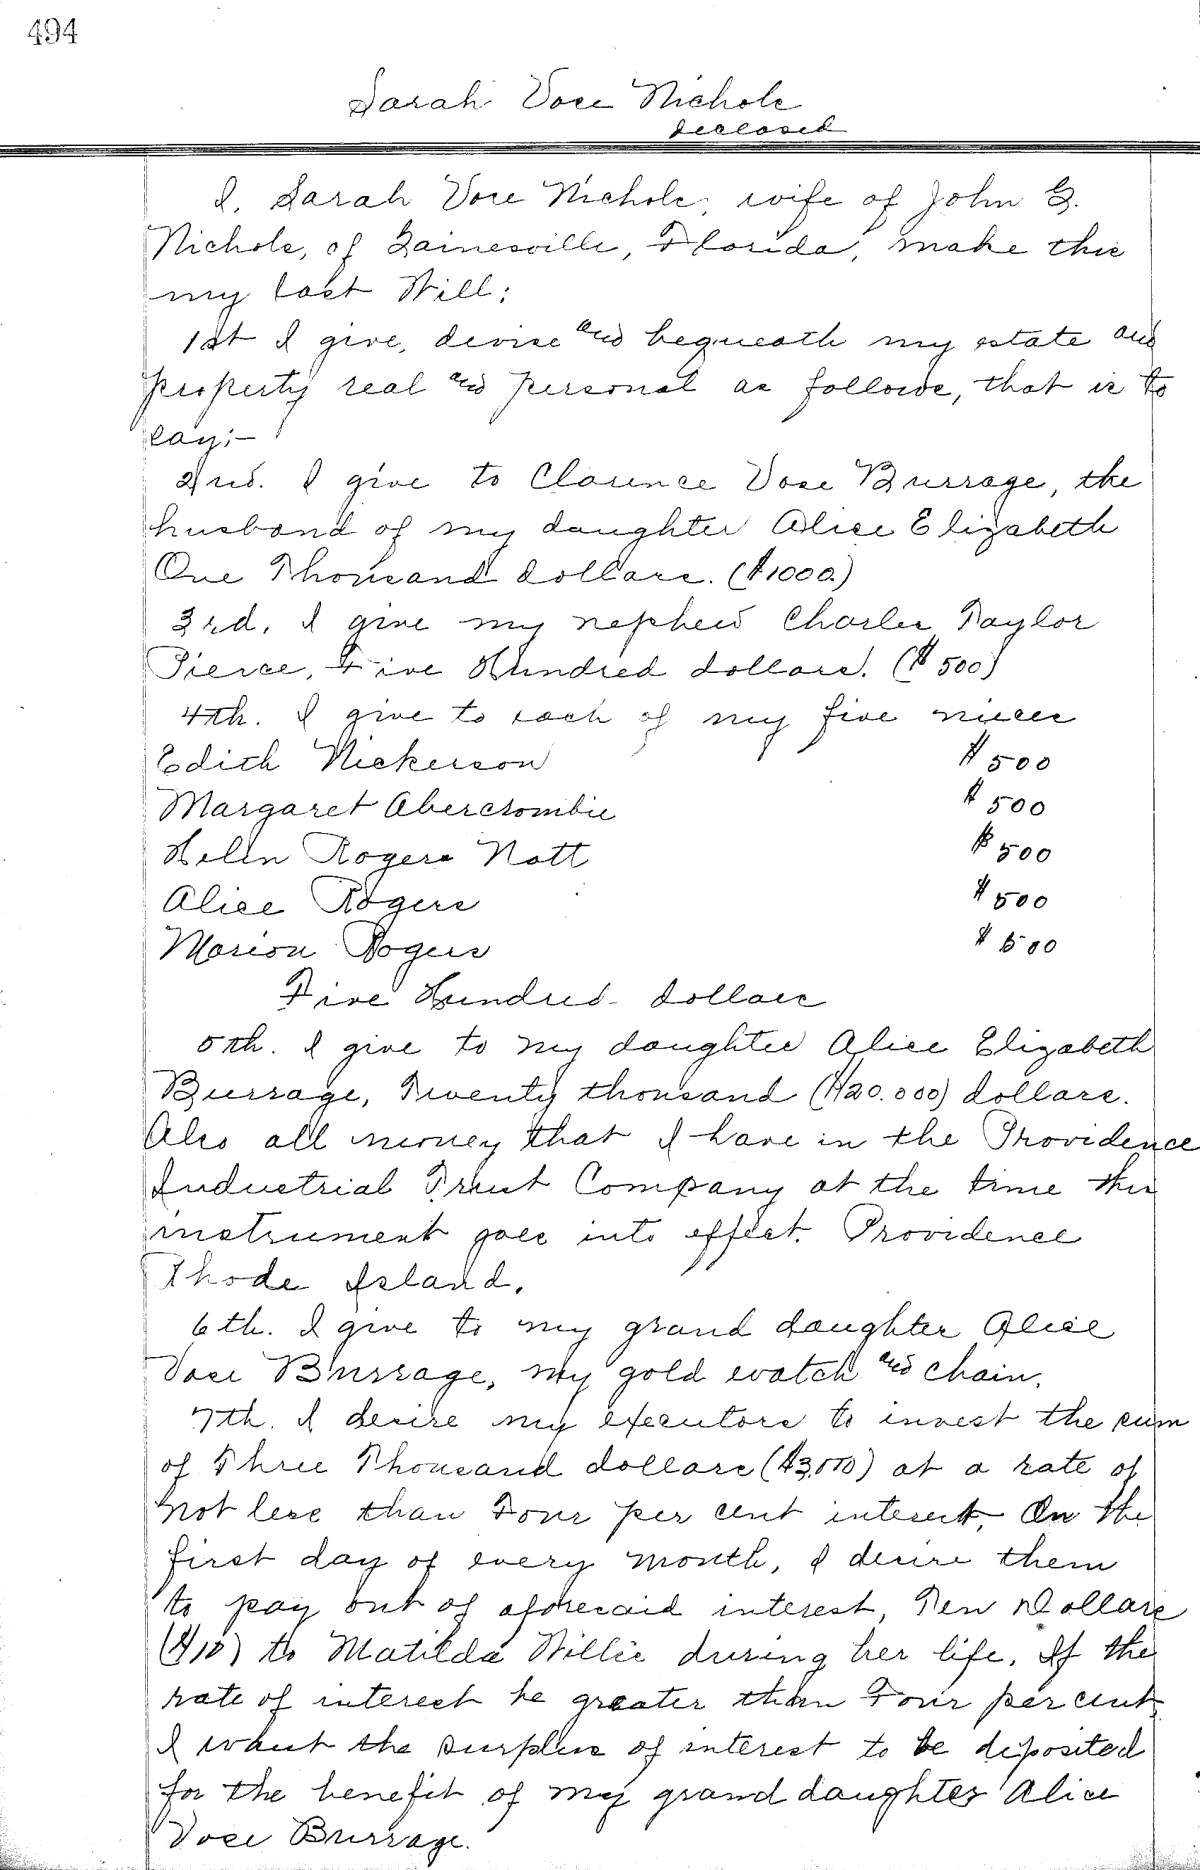 494
Sarah Vose Nichols
deceased
I, Sarah Vose Nichols, wife of John G.
Nichols, of Gainesville, Florida, make this
my last Will:
1st I give, devise and bequeath my estate and
property real and personal as follows, that is to
say:-
2nd. I give to Clarence Vose Burrage, the
husband of my daughter Alice Elizabeth
One Thousand dollars. ($1000.)
3rd. I give my nephew Charles Taylor
Pierce, Five Hundred dollars. ($500)
4th. I give to each of my five nieces
Edith Nickerson $500
Margaret Abercrombie $500
Helen Rogers Nott $500
Alice Rogers $500
Marion Rogers $500
Five Hundred dollars
5th. I give to my daughter Alice Elizabeth
Burrage, Twenty thousand ($20.000) dollars.
Also all money that I have in the Providence
Industrial Trust Company at the time this
instrument goes into effect. Providence
Rhode Island.
6th. I give to my grand daughter Alice
Vose Burrage, my gold watch and chain.
7th. I desire my executors to invest the sum
of Three Thousand dollars ($3,000) at a rate of
not less than Four per cent interest. On the
first day of every month, I desire them
to pay out of aforesaid interest, Ten Dollars
($10) to Matilda Willis during her life. If the
rate of interest be greater than Four per cent,
I want the surplus of interest to be deposited
for the benefit of my grand daughter Alice
Vose Burrage.